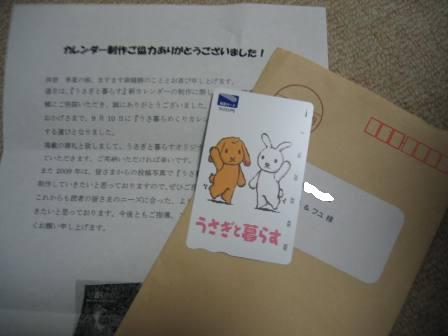 カレンダー制作ご協力ありがとうございました!
拝啓 季夏の候、ますます御健勝のこととお喜び申し上げます。
過日は、『うさぎと暮らす』新カレンダーの制作に際し
誠にありがとうございました。
おかげさまで、9月10日に『うさ暮らめくりカレン
する運びとなりました。
掲載の御礼と致しまして、うさぎと暮らすオリジナ
ていただきます。ご笑納いただければ幸いです。
また2009年は、皆さまからの投稿写真で『うさ
制作していきたいと思っておりますので、ぜひご
これからも読者の皆さまのニーズに合った、よ
きたいと思っております。今後ともご指導、
くお願い申し上げます。
うさぎと暮らす
& フユ 様